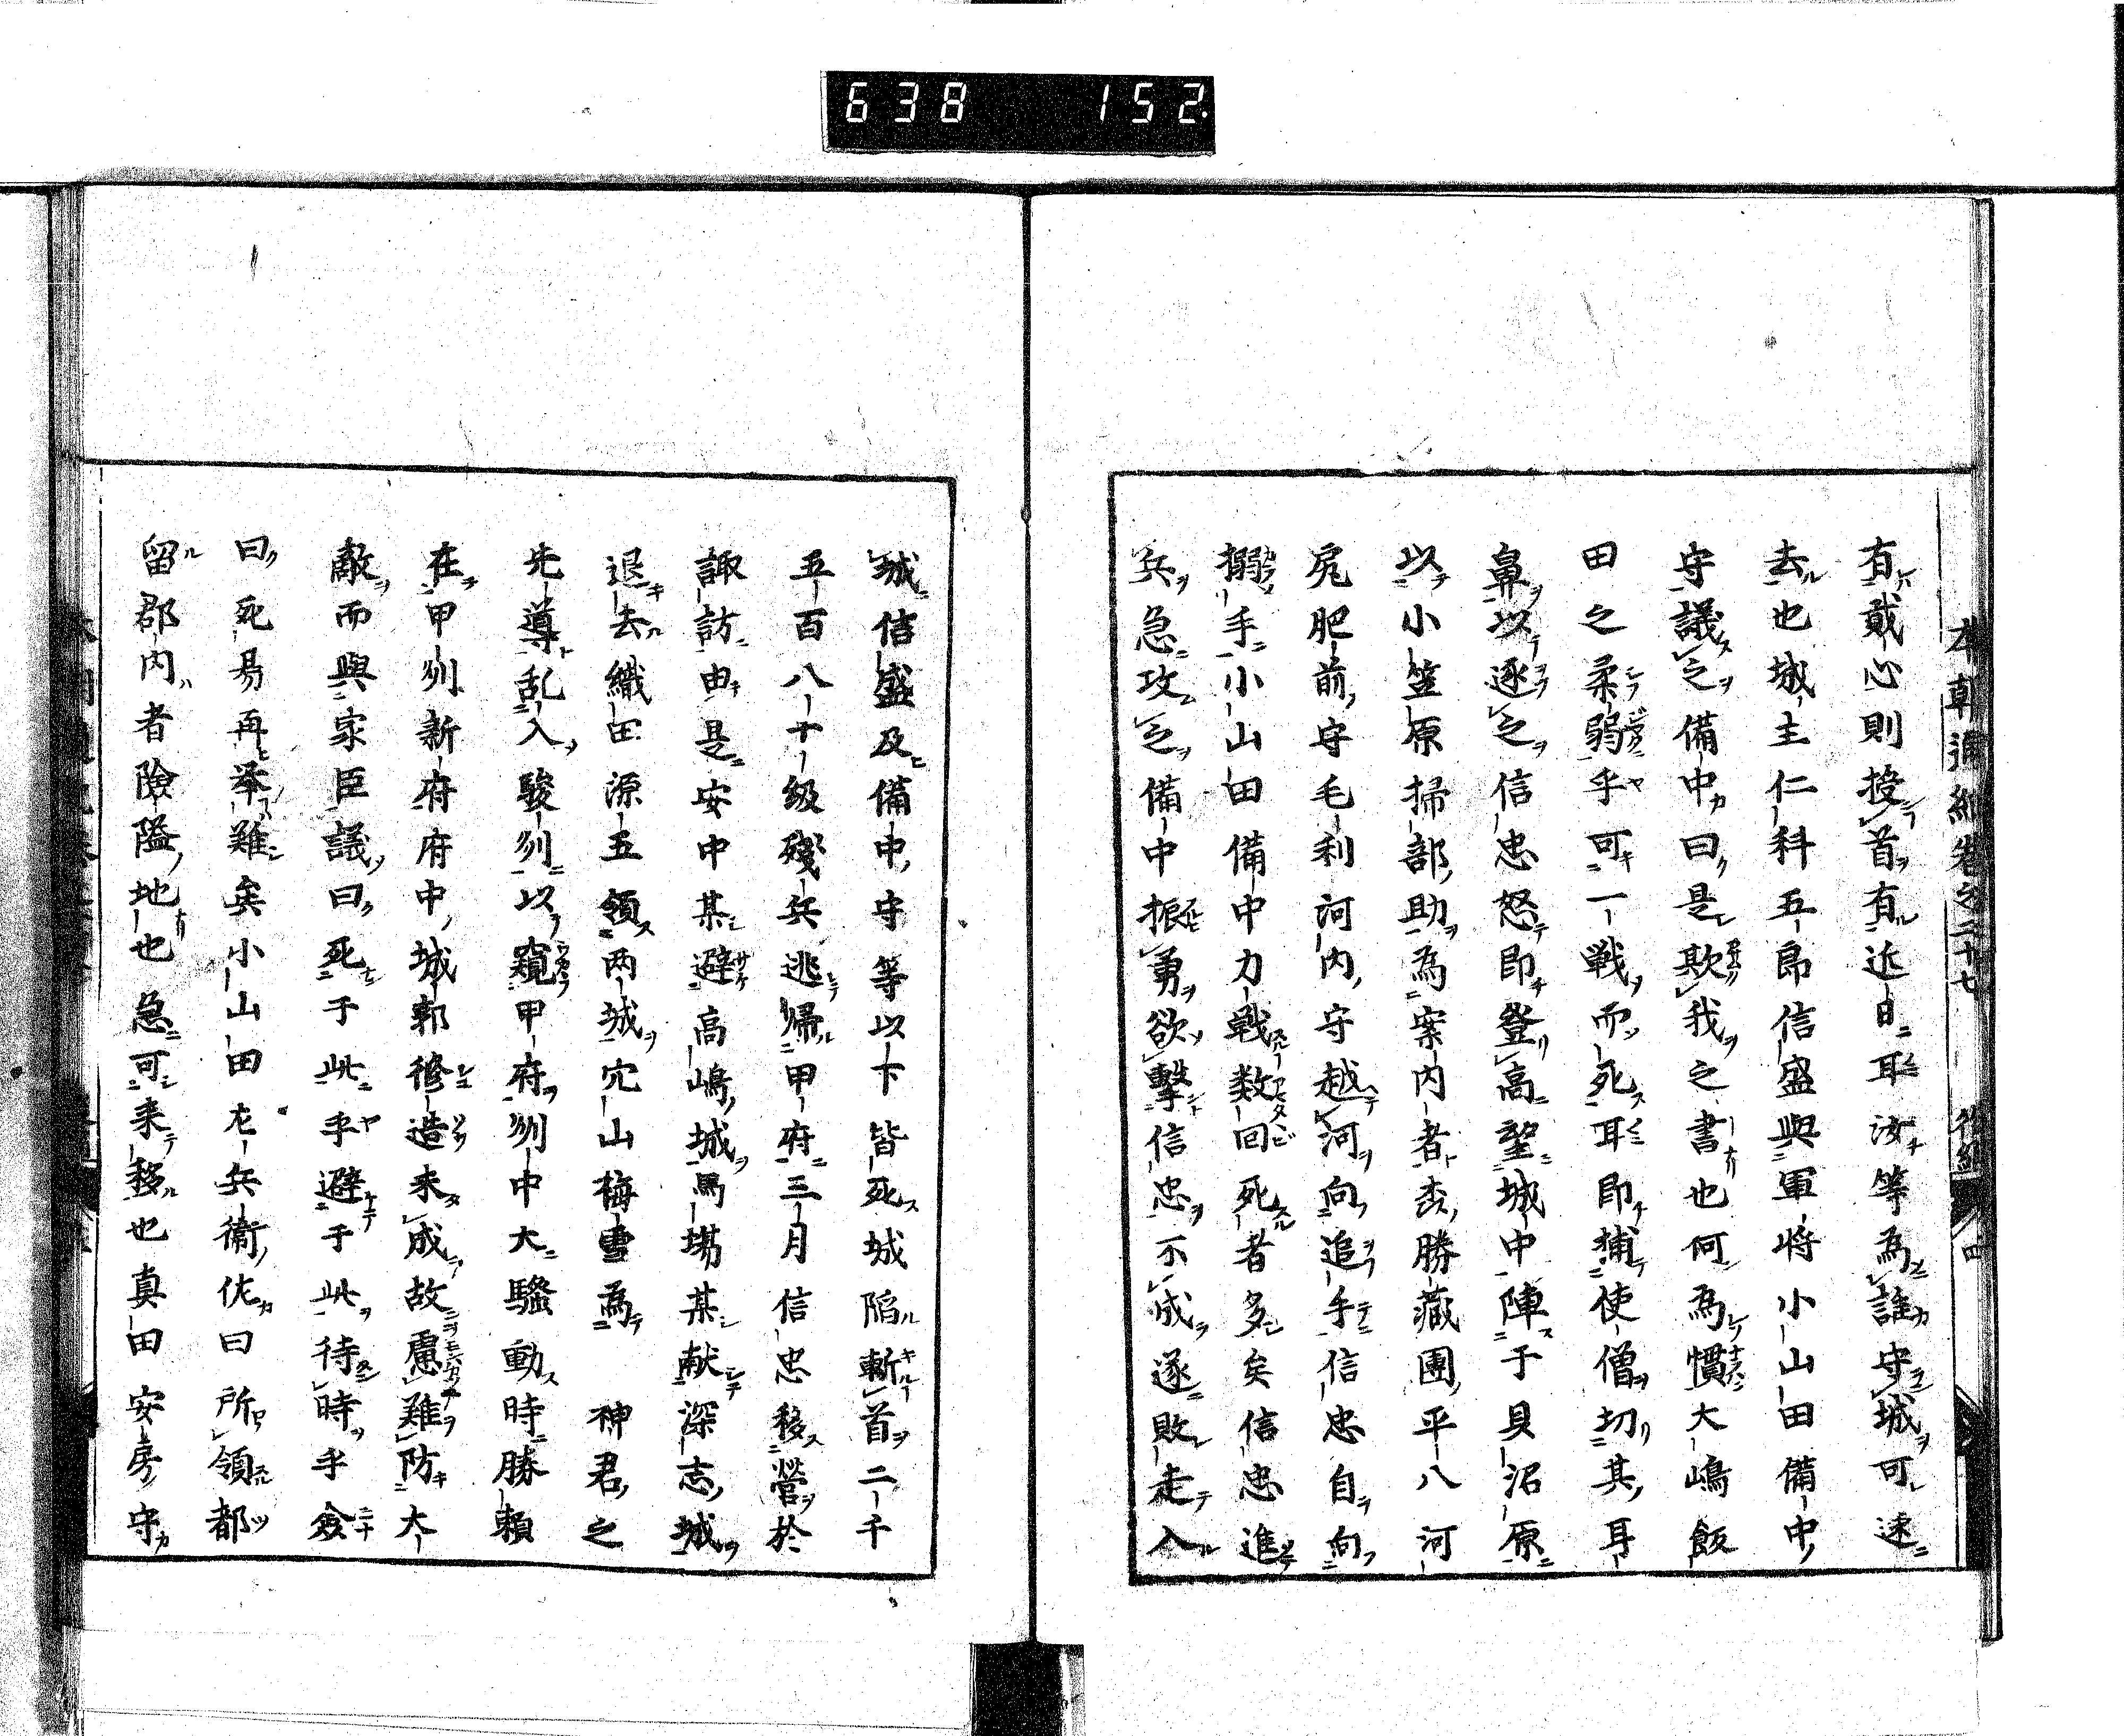 638 152
本朝通紀卷之二十七
四
有貳心則授首有近日耳汝等為誰守城可速
去也城主仁科五郎信盛與軍將小山田備中
守議之備中曰是欺我之書也何為慣大嶋飯
田之柔弱乎可一戰而死耳即捕使僧切其耳
鼻以逐之信忠怒即登高望城中陣于貝沼原
以小笠原掃部助為案内者森勝藏團平八河
尻肥前守毛利河内守越河向追手信忠自向
搦手小山田備中力戰数回死者多矣信忠進
兵急攻之備中振勇欲擊信忠不成遂敗走入
城信盛及備中守等以下皆死城陷斬首二千
五百八十級殘兵逃歸甲府三月信忠移營於
諏訪由是安中某避高嶋城馬場某献深志城
退去織田源五領两城穴山梅雪為 神君之
先導乱入駿州以窺甲府州中大騷動時勝頼
在甲州新府府中城郭修造未成故慮難防大
敵而與家臣議曰死于此乎避于此待時乎僉
曰死易再举難矣小山田左兵衛佐曰所領都
留郡内者險隘地也急可来移也真田安房守